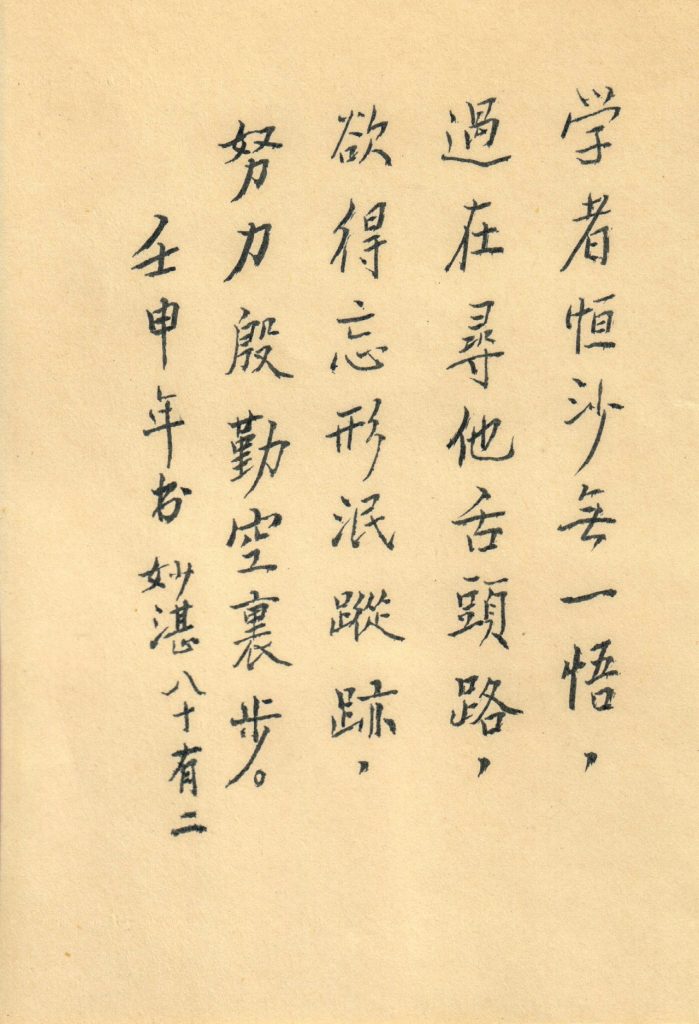 学者恒沙无一悟，
過在尋他舌頭路，
欲得忘形泯蹤跡，
努力殷勤空裏步。
壬申年书 妙湛八十有二